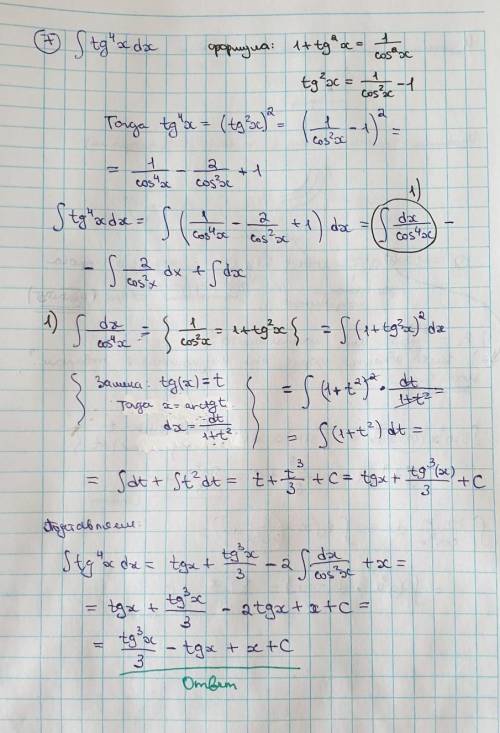 7) ∫ tg⁴x dx формула: 1 + tg²x = 1/cos²x
tg²x = 1/cos²x - 1
Тогда tg⁴x = (tg²x)² = (1/cos²x - 1)² =
= 1/cos⁴x - 2/cos²x + 1
1)
∫ tg⁴x dx = ∫ (1/cos⁴x - 2/cos²x + 1) dx = ∫ dx/cos⁴x -
- ∫ 2/cos²x dx + ∫ dx
1) ∫ dx/cos⁴x = { 1/cos²x = 1 + tg²x } = ∫ (1 + tg²x)² dx
{ Замена: tg(x) = t } = ∫ (1 + t²)² · dt/(1+t²) =
Тогда x = arctg t
dx = dt/(1+t²) = ∫ (1 + t²) dt =
= ∫ dt + ∫ t² dt = t + t³/3 + C = tgx + tg³(x)/3 + C
Подставляем:
∫ tg⁴x dx = tgx + tg³x/3 - 2 ∫ dx/cos²x + x =
= tgx + tg³x/3 - 2tgx + x + C =
= tg³x/3 - tgx + x + C
Ответ